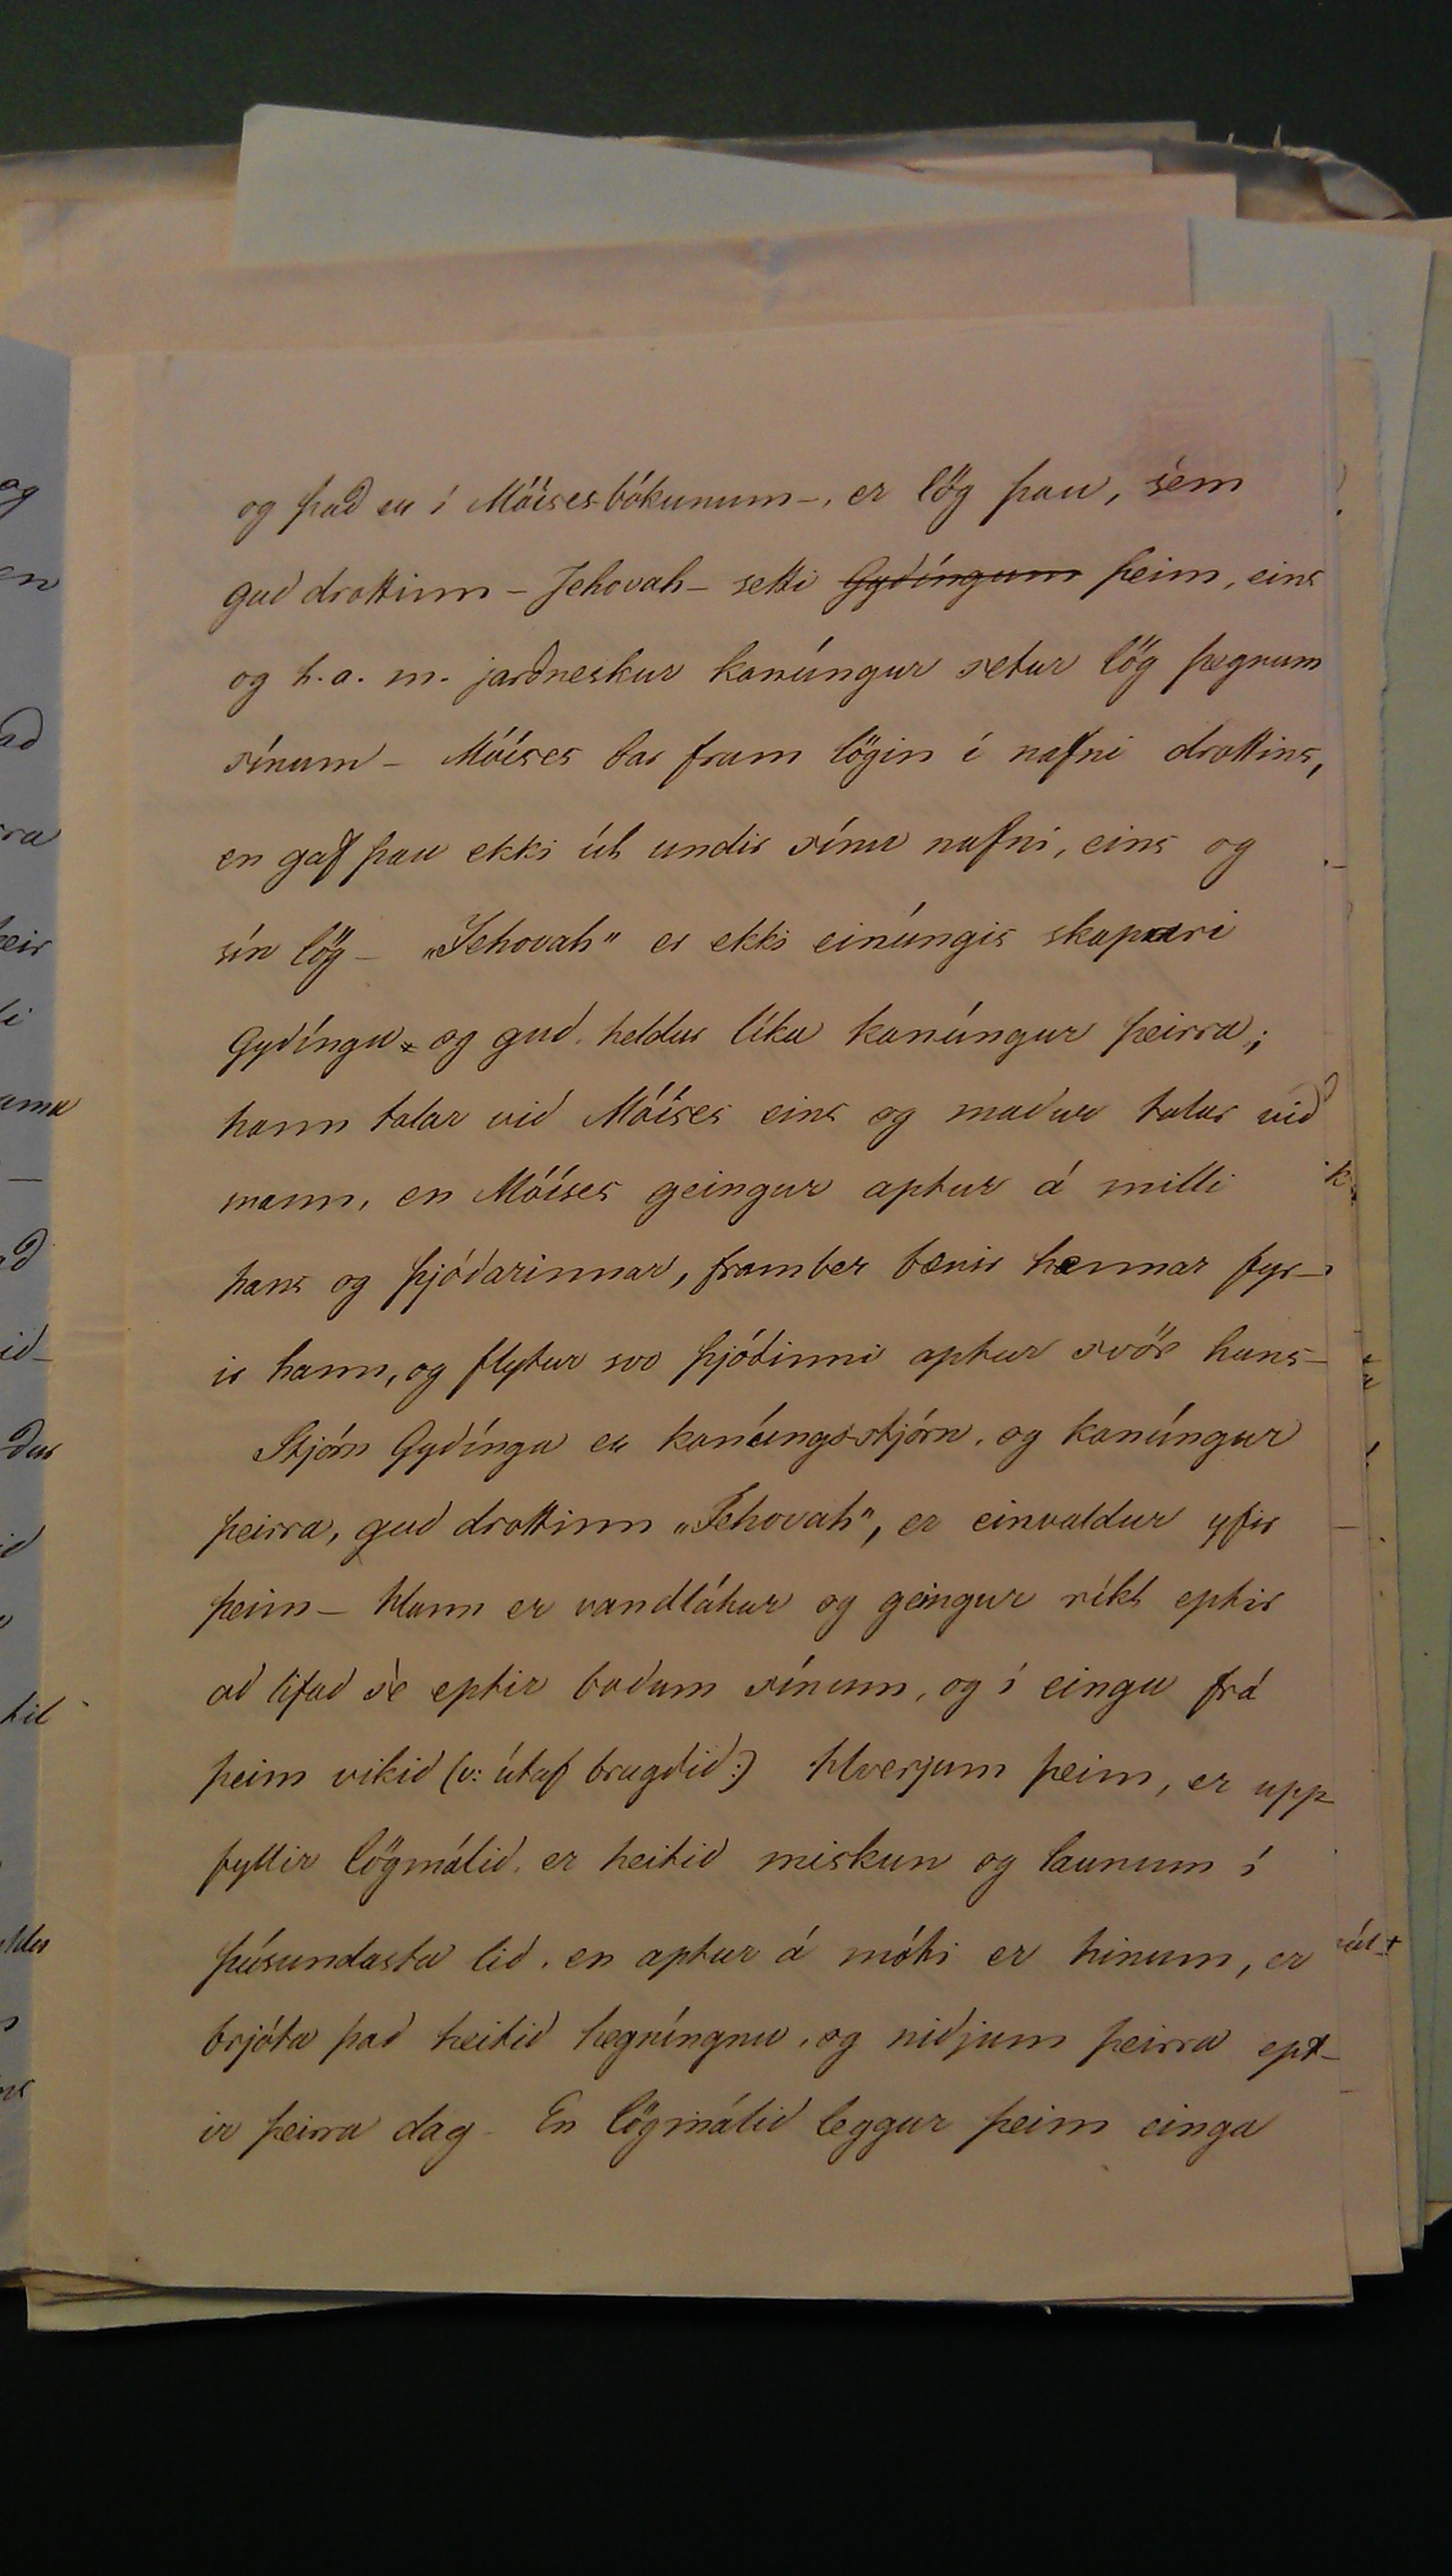 og það er í Móísesbókunum –, er lög þau, sem
guð drottinn – Jehovah – setti Gyðíngum þeim, eins
og h. a. m. jarðneskur konúngur setur lög þegnum
sínum – Móíses bar fram lögin í nafni drottins,
en gaf þau ekki út undir sínu nafni, eins og
sín lög – „Jehovah“ er ekki einúngis skapari
Gyðínga og guð, heldur líka konúngur þeirra;
hann talar við Móíses eins og maður talar við
mann, en Móíses geingur aptur á milli
hans og þjóðarinnar, framber bænir hennar fyr–
ir hann, og flytur svo þjóðinni aptur svör hans –
Stjórn Gyðínga er konúngsstjórn, og konúngur
þeirra, guð drottinn „Jehovah“, er einvaldur yfir
þeim – Hann er vandlátur og geingur ríkt eptir
að lifað sè eptir boðum sínum, og í eingu frá
þeim vikið (ɔ: útaf brugðið:) Hverjum þeim, er upp
fyllir lögmálið, er heitið miskun og launum í
þúsundasta lið, en aptur á móti er hinum, er
brjóta það heitið hegníngu, og niðjum þeirra ept–
ir þeirra dag – En lögmálið leggur þeim einga